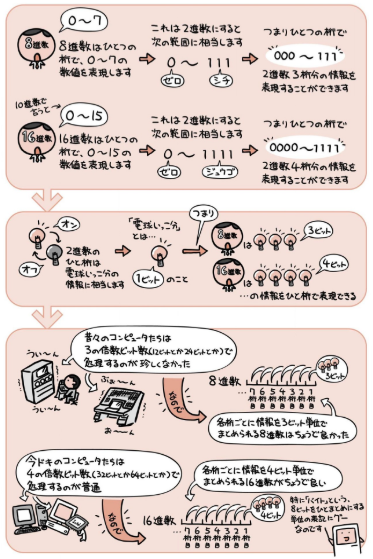 0〜7
8進数
8進数はひとつの
桁で、0〜7の
数値を表現します
これは2進数にすると
次の範囲に相当します
0 〜 111
ゼロ
シチ
つまりひとつの桁で
000 〜 111
2進数3桁分の情報を
表現することができます
10進数で
言うと
0〜15
16進数
16進数はひとつの
桁で、0〜15の
数値を表現します
これは2進数にすると
次の範囲に相当します
0 〜 1111
ゼロ
ジュウゴ
つまりひとつの桁で
0000〜1111
2進数4桁分の情報を
表現することができます
オン
オフ
2進数の
ひと桁は
電球いっこ分の
情報に相当します
「電球いっこ分」
とは…
1ビット のこと
つまり
8進数
は
3ビット
16進数
は
4ビット
…の情報をひと桁で表現できる
昔々のコンピュータたちは
3の倍数ビット数(12ビットとか24ビットとか)で
処理するのが珍しくなかった
うぃ〜ん
うい〜ん
ぶぉ〜ん
お〜ん
だから
8進数
7 6 5 4 3 2 1
桁 桁 桁 桁 桁 桁 桁
3ビット
各桁ごとに情報を3ビット単位で
まとめられる8進数はちょうど良かった
今ドキのコンピュータたちは
4の倍数ビット数(32ビットとか64ビットとか)で
処理するのが普通
だから
各桁ごとに情報を4ビット単位で
まとめられる16進数がちょうど良い
16進数
7 6 5 4 3 2 1
桁 桁 桁 桁 桁 桁 桁
4ビット
特に「バイト」という、
8ビットをひとまとめにする
単位の表記にグー
なのです